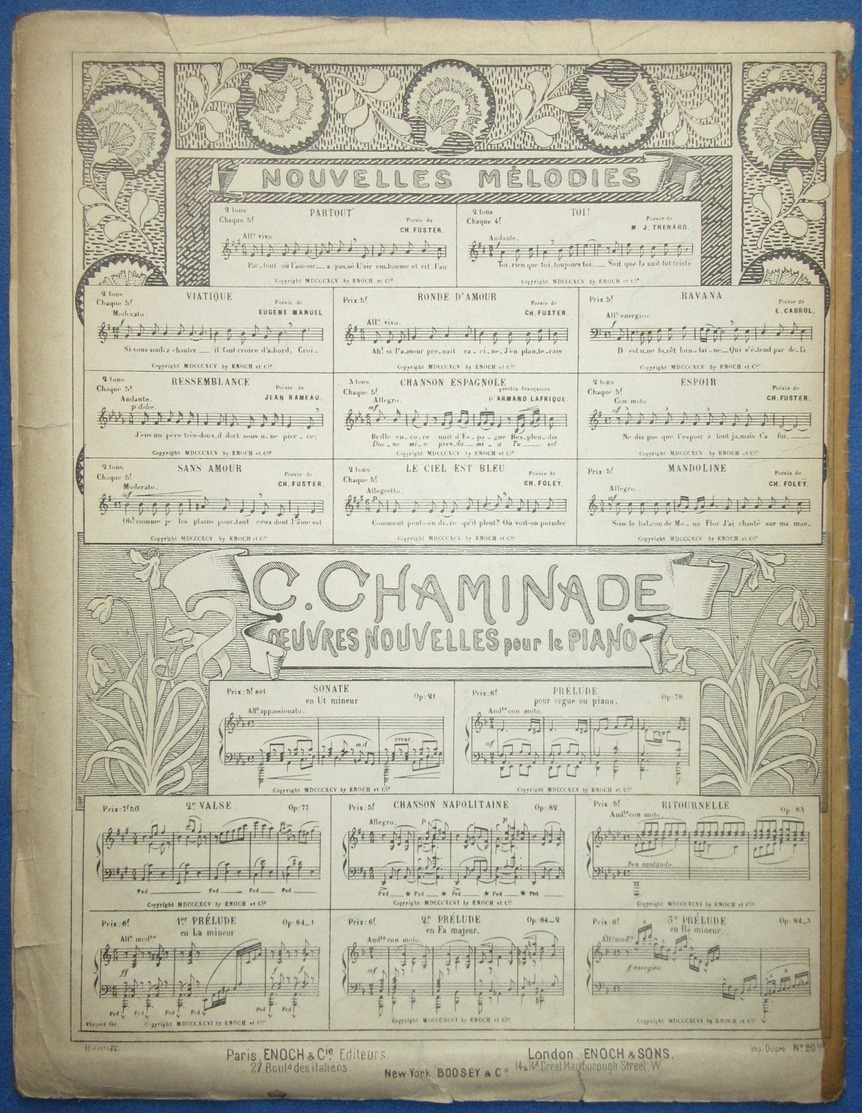 NOUVELLES MÉLODIES
2 tons
Chaque 5f
PARTOUT
Poésie de
CH. FUSTER.
Allo vivo.
Par_tout où l'amour__ a pas_sé L'air em_baume et rit l'air
Copyright MDCCCXCV by ENOCH et Cie
2 tons
Chaque 4f
TOI!
Poésie de
M J. THENARD
Andante.
Toi, rien que toi, toujours toi __ Soit que la nuit fut triste
Copyright MDCCCXCV by ENOCH et Cie
2 tons
Chaque 5f
VIATIQUE
Poésie de
EUGENE MANUEL
Moderato.
Si vous voulez chanter ___ il faut croire d'abord, Croi_
Copyright MDCCCXCV by ENOCH et Cie
Prix: 5f
RONDE D'AMOUR
Poésie de
CH. FUSTER.
Allo vivo
Ah! si l'a_mour pre_nait ra_ci_ne, J'en plan_te_rais
Copyright MDCCCXCV by ENOCH et Cie
Prix: 5f
RAVANA
Poésie de
E. CABROL.
Allo energico.
Il est u_ne fo_rêt loin_tai_ne_ Qui s'é_tend par de_là
Copyright MDCCCXCV by ENOCH et Cie
2 tons
Chaque 5f
RESSEMBLANCE
Poésie de
JEAN RAMEAU.
Andante.
p dolce
J'eus un père très-doux, il dort sous u_ne pier_re;
Copyright MDCCCXCV by ENOCH et Cie
3 tons
Chaque 5f
CHANSON ESPAGNOLE
paroles françaises
D'ARMAND LAFRIQUE.
Allegro.
mf
Brille en_co_re nuit d'Es_pa_gne Res_plen_dis
Copyright MDCCCXCV by ENOCH et Cie
2 tons
Chaque 5f
ESPOIR
Poésie de
CH. FUSTER.
Con moto
mf
Ne dis pas que l'espoir à tout ja_mais t'a fui, ___
Copyright MDCCCXCV by ENOCH et Cie
2 tons
Chaque 5f
SANS AMOUR
Poésie de
CH. FUSTER.
Moderato.
mf
Oh! comme je les plains pour_tant ceux dont l'âme est
Copyright MDCCCXCV by ENOCH et Cie
2 tons
Chaque 5f
LE CIEL EST BLEU
Poésie de
CH. FOLEY.
Allegretto.
Comment peut-on di_re qu'il pleut? Où voit-on poindre
Copyright MDCCCXCV by ENOCH et Cie
Prix: 5f
MANDOLINE
Poésie de
CH. FOLEY.
Allegro.
mf
Sous le bal_con de Mo_na Flor J'ai chanté sur ma man_
Copyright MDCCCXCV by ENOCH et Cie
C. CHAMINADE
ŒUVRES NOUVELLES pour le PIANO
Prix: 5f net
SONATE
en Ut mineur
Op: 21
Allo appassionato.
m.d.
cresc
Copyright MDCCCXCV by ENOCH et Cie
Prix: 6f
PRÉLUDE
pour orgue ou piano.
Op: 78
Andte con moto.
mf
Copyright MDCCCXCV by ENOCH et Cie
Prix: 7f50
2e VALSE
Op: 77
Ped ____ Ped __ Ped __ Ped __
Copyright MDCCCXCV by ENOCH et Cie
Prix: 5f
CHANSON NAPOLITAINE
Op: 82
Allegro.
p
p
Ped __ * Ped __ * Ped __ * Ped __ * Ped
Copyright MDCCCXCVI by ENOCH et Cie
Prix: 5f
RITOURNELLE
Op: 83
Andte con moto.
Ben cantando.
Copyright MDCCCXCVI by ENOCH et Cie
Prix: 6f
1er PRÉLUDE
en La mineur
Op: 84_1
Allo modto
ff
f
Ped Ped Ped Ped Ped Ped
Copyright MDCCCXCVI by ENOCH et Cie
Prix: 6f
2e PRÉLUDE
en Fa majeur.
Op: 84_2
Andte con moto
mf
Copyright MDCCCXCVI by ENOCH et Cie
Prix: 6f
3e PRÉLUDE
en Re mineur.
Op: 84_3
Allo modto
f energico.
Ped
Copyright MDCCCXCVI by ENOCH et Cie
Paris, ENOCH & Cie Editeurs.
27 Bould des italiens.
New-York, BOOSEY & Co
London, ENOCH & SONS.
14 & 14a Great Marlborough Street, W
Imp. Dupré No 20